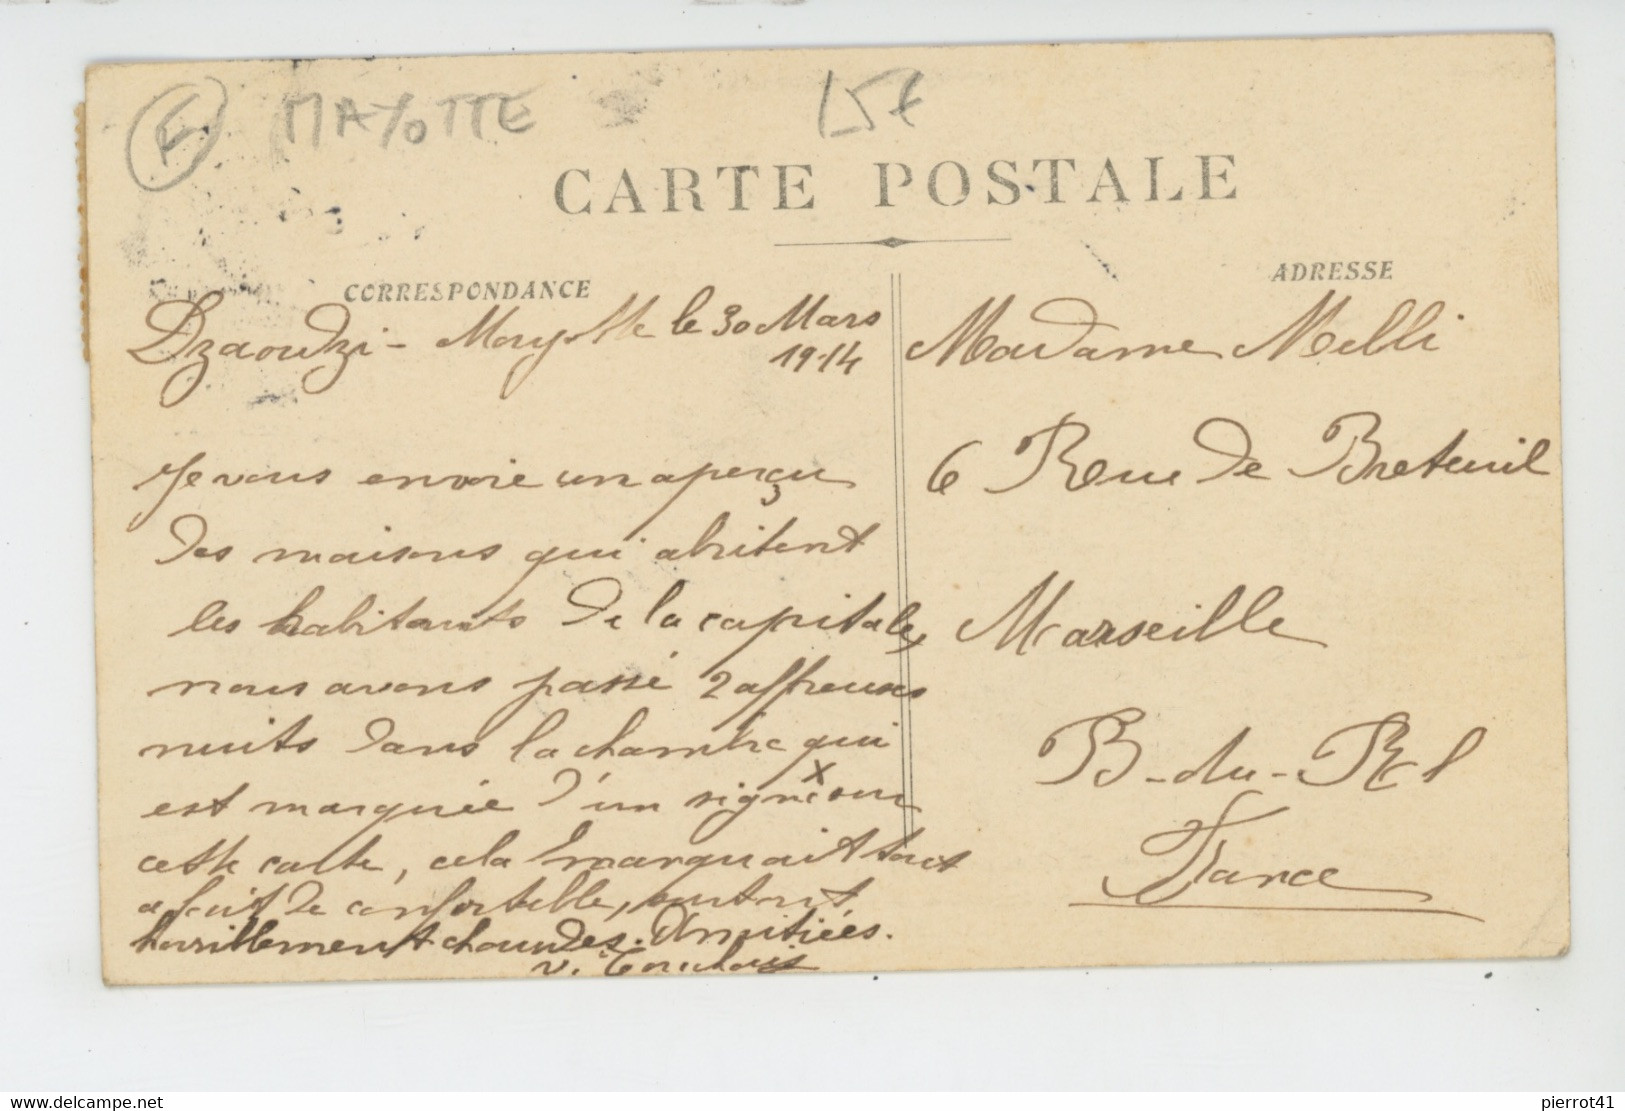 F MAYOTTE 15€
CARTE POSTALE
CORRESPONDANCE
Dzaoudzi - Mayotte le 30 Mars
1914
Je vous envoie un aperçu
des maisons qui abritent
les habitants de la capitale,
nous avons passé 2 affreuses
nuits dans la chambre qui
est marquée d'un signe x sur
cette carte, cela manquait tout
a fait de confortable, surtout
horriblement chaudes. Amitiées.
V.
ADRESSE
Madame Melli
6 Rue de Breteuil
Marseille
B-du-R
France
delcampe.net
pierrot41